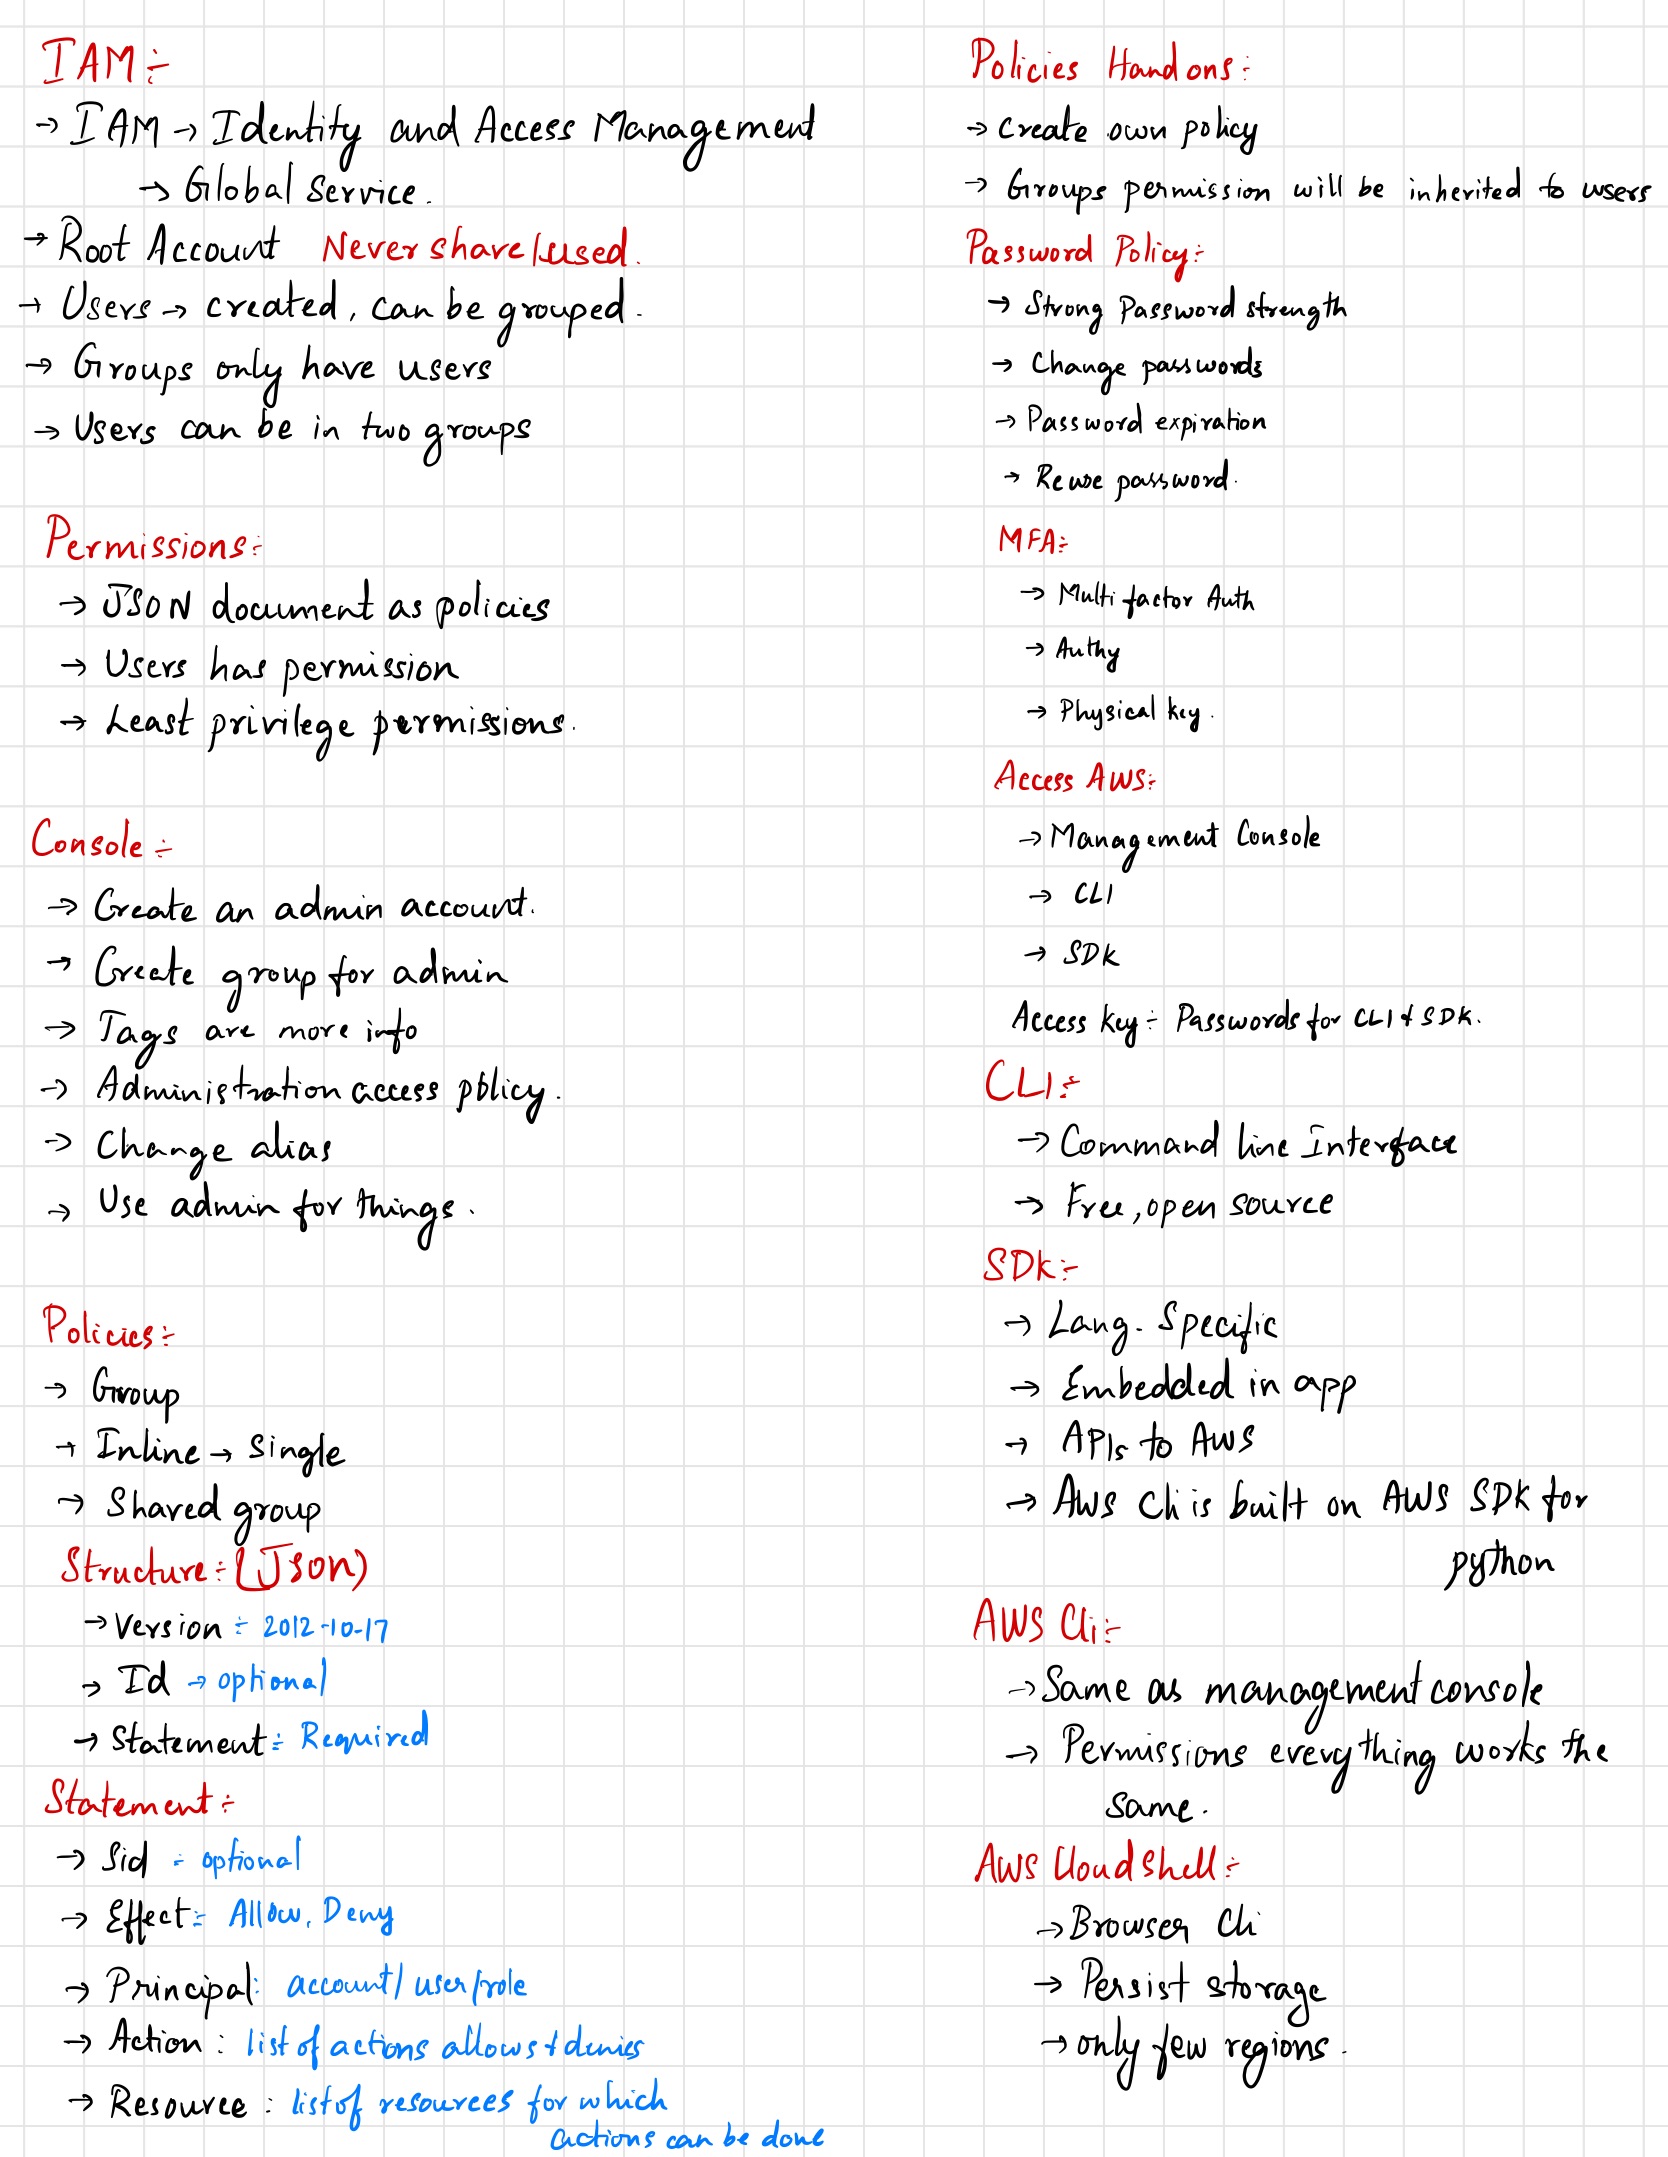 IAM:-
→ IAM → Identity and Access Management
→ Global Service.
→ Root Account Never share/used.
→ Users → created, can be grouped.
→ Groups only have users
→ Users can be in two groups
Permissions:-
→ JSON document as policies
→ Users has permission
→ Least privilege permissions.
Console:-
→ Create an admin account.
→ Create group for admin
→ Tags are more info
→ Administration access policy.
→ Change alias
→ Use admin for things.
Policies:-
→ Group
→ Inline → Single
→ Shared group
Structure:- (Json)
→ Version:- 2012-10-17
→ Id → optional
→ Statement:- Required
Statement:-
→ Sid - optional
→ Effect:- Allow, Deny
→ Principal: account/user/role
→ Action: list of actions allows & denies
→ Resource: list of resources for which
actions can be done
Policies Hand ons:-
→ Create own policy
→ Groups permission will be inherited to users
Password Policy:-
→ Strong Password strength
→ Change passwords
→ Password expiration
→ Reuse password.
MFA:-
→ Multi factor Auth
→ Authy
→ Physical key.
Access AWS:-
→ Management Console
→ CLI
→ SDK
Access key:- Passwords for CLI & SDK.
CLI:-
→ Command line Interface
→ Free, open source
SDK:-
→ Lang. Specific
→ Embedded in app
→ APIs to AWS
→ AWS Cli is built on AWS SDK for
python
AWS Cli:-
→ Same as management console
→ Permissions everything works the
same.
AWS Cloud Shell:-
→ Browser Cli
→ Persist storage
→ only few regions.